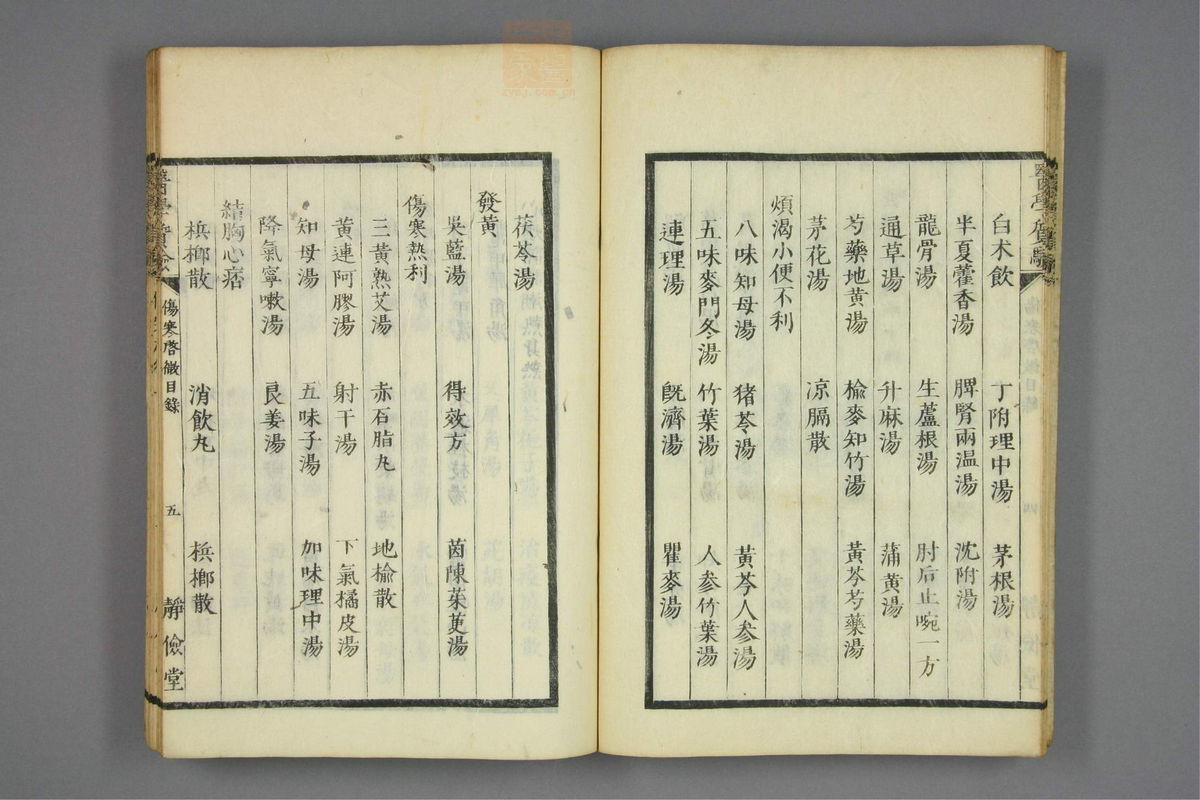 白术飲 丁附理中湯 茅根湯
半夏藿香湯 脾腎兩温湯 沈附湯
龍骨湯 生蘆根湯 肘后止啘一方
通草湯 升麻湯 蒲黄湯
芍藥地黄湯 榆麥知竹湯 黄芩芍藥湯
茅花湯 凉膈散
煩渴小便不利
八味知母湯 猪苓湯 黄芩人参湯
五味麥門冬湯 竹葉湯 人参竹葉湯
連理湯 旣濟湯 瞿麥湯
茯苓湯
發黄
吳藍湯 得效方 茵陳茱萸湯
傷寒熱利
三黄熟艾湯 赤石脂丸 地榆散
黄連阿膠湯 射干湯 下氣橘皮湯
知母湯 五味子湯 加味理中湯
降氣寧嗽湯 良姜湯
結胸心痞
梹榔散 消飲丸 梹榔散
傷寒啓微目錄 五 靜儉堂
zybj.com.cn